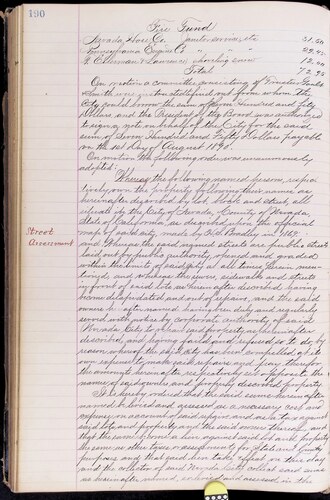 190
Fire Fund
Nevada Hose Co. Janitor services, etc 31.50
Pennsylvania Engine Co " " "
G. Coleman & Lawrence, shoveling snow 12.00
Total 72.95
On motion a committee consisting of Trustees
Smith was appointed to find out from whom the
City could borrow the sum of Seven Hundred and Fifty
Dollars and the President of the Board was authorized
to sign a note on behalf of the City for the said
sum of Seven Hundred and Fifty Dollars payable
on the 1st day of August 190.
On motion the following order was unanimously
adopted:
Whereas the following named persons respec-
tively own the property following their names as
hereinafter described by lot, block and street, all
situate in the City of Nevada, County of Nevada,
State of California as described on the official
map of said city, made by H.S. Bradley in 1869
Street
Assessment
and Whereas the said original streets are public streets
laid out by public authority, opened and graded
within the limits of said city at all times herein men-
tioned, and whereas the sewers, sidewalks and streets
in front of said lots as hereinafter described having
become dilapidated and out of repair, and the said
owners hereinafter named having been duly and regularly
served with notice by
Nevada City to repair said property as hereinafter
described, and having failed and refused so to do, by
reason whereof the said City has been compelled at its
own expense to make said repairs and improvements, for
the amounts hereinafter respectively set opposite the
names of said owners and properly described property
It is hereby ordered that the said sums hereinafter
named be levied and assessed as a necessary cost and
expense on account of said repairs and as a tax against
said lots and property and the said owners thereof and
that the same become a lien against said lots and property
the same as other taxes or assessments for State and County
purposes and that said lien take effect on this day
and the collector of said Nevada City collect said sums
as hereinafter named, and assessed in the